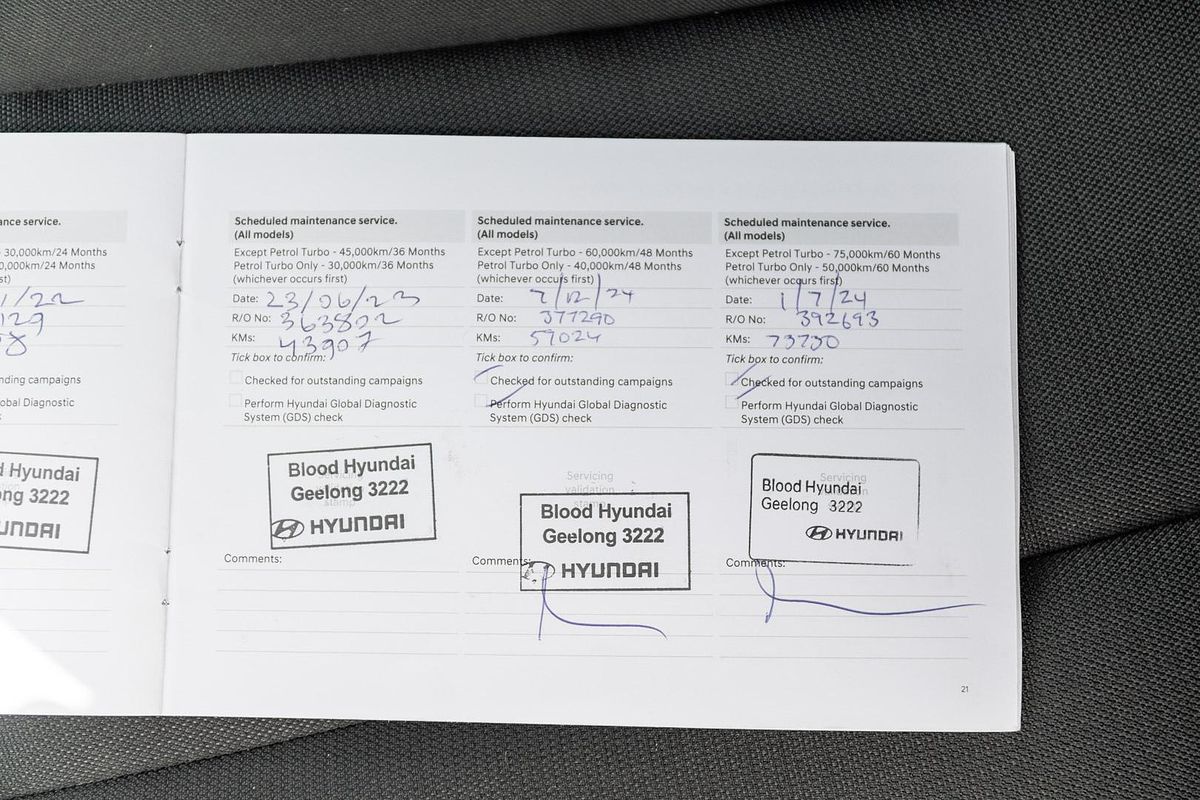 ance service.
- 30,000km/24 Months
0,000km/24 Months
st)
1/22
129
nding campaigns
obal Diagnostic
k
d Hyundai
ong 3222
UNDAI
Scheduled maintenance service.
(All models)
Except Petrol Turbo - 45,000km/36 Months
Petrol Turbo Only - 30,000km/36 Months
(whichever occurs first)
Date: 23/06/23
R/O No: 363802
KMs: 43907
Tick box to confirm:
Checked for outstanding campaigns
Perform Hyundai Global Diagnostic
System (GDS) check
Servicing
stamp
Blood Hyundai
Geelong 3222
HYUNDAI
Comments:
Scheduled maintenance service.
(All models)
Except Petrol Turbo - 60,000km/48 Months
Petrol Turbo Only - 40,000km/48 Months
(whichever occurs first)
Date: 7/12/24
R/O No: 377290
KMs: 59024
Tick box to confirm:
Checked for outstanding campaigns
Perform Hyundai Global Diagnostic
System (GDS) check
Servicing
validation
Blood Hyundai
Geelong 3222
HYUNDAI
Comments:
Scheduled maintenance service.
(All models)
Except Petrol Turbo - 75,000km/60 Months
Petrol Turbo Only - 50,000km/60 Months
(whichever occurs first)
Date: 1/7/24
R/O No: 392693
KMs: 73730
Tick box to confirm:
Checked for outstanding campaigns
Perform Hyundai Global Diagnostic
System (GDS) check
Servicing
Blood Hyundai
Geelong 3222
HYUNDAI
Comments:
21